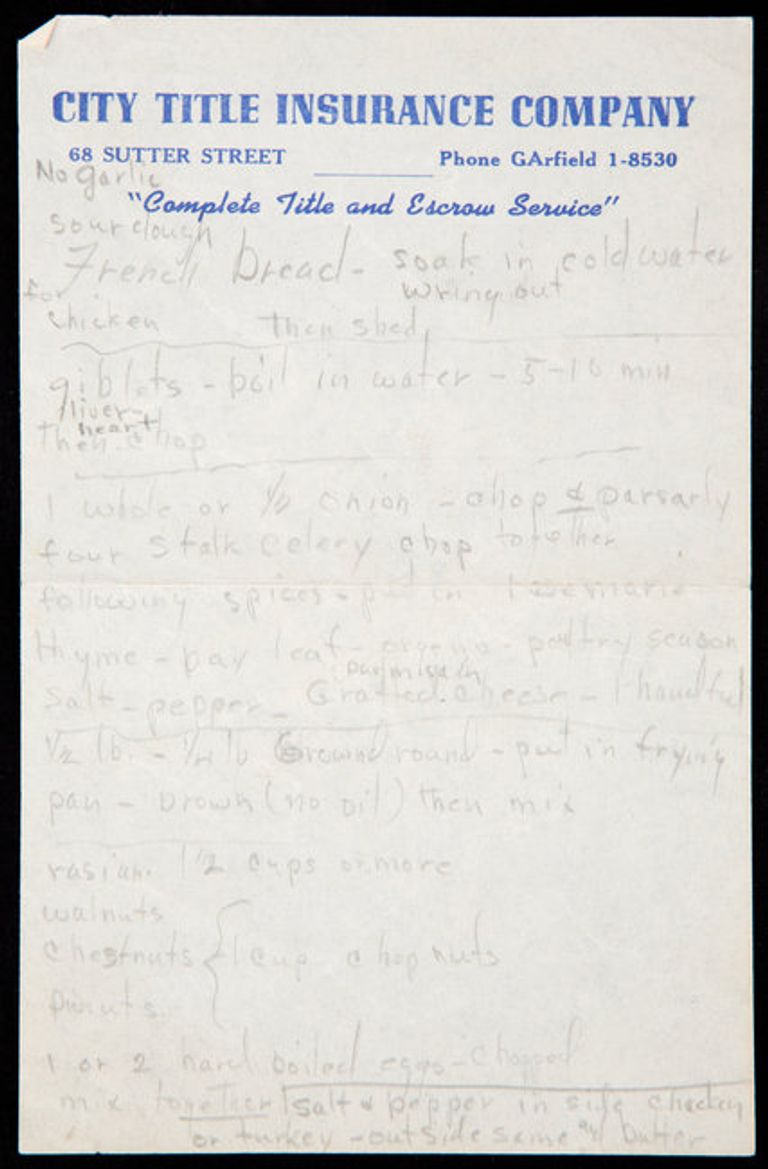 CITY TITLE INSURANCE COMPANY
68 SUTTER STREET Phone GArfield 1-8530
No garlic
"Complete Title and Escrow Service"
sourdough
French bread - soak in cold water
wring out
for
chicken then shed
giblets - boil in water - 5-10 min
liver-
heart
then chop
1 whole or 1/2 onion - chop & parsarly
four stalk celery chop together
following spices - put in
thyme - bay leaf - oregeno - poultry season
parmisain
Salt - pepper - Gratted Cheese - 1 handful
1/2 lb. - 1/4 lb Ground round - put in frying
pan - brown (no oil) then mix
rasian. 1 1/2 cups or more
walnuts
Chestnuts { 1 cup chop nuts
pinuts
1 or 2 hard boiled eggs - chopped
mix together salt & pepper in side chicken
or turkey - outside same and butter